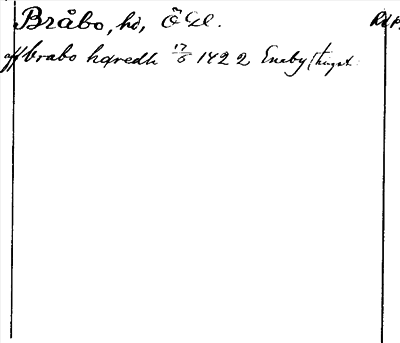 Bråbo, hd, Ög. RAP.
aff brabo hæredh 17/6 1422 Eneby tingst.